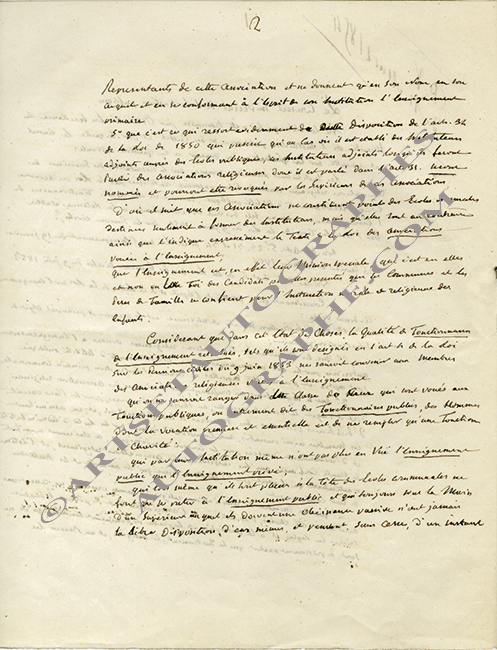 2
Representants de cette association et ne donnent qu'en son nom, en son
acquit et en se conformant à l'Esprit de son Institution l'Enseignement
primaire.
5° que c'est ce qui ressort evidemment de cette Disposition de l'art. 34
de la loi de 1850 qui prescrit qu'au cas où il est etabli des Instituteurs
adjoints auprès des Ecoles publiques, ces Instituteurs adjoints lorsqu'ils feront
Partie des associations religieuses dont il est parlé dans l'art. 31. seront
nommés et pourront être revoqués par les Superieurs de ces associations
D'où il suit que ces Associations ne constituent point des Ecoles normales
destinées seulement à former des Instituteurs, mais qu'elles sont au contraire
ainsi que l'indique expressement le Texte de la loi des associations
vouées à l'Enseignement.
que l'Enseignement est en effet leur Mission speciale, que c'est en elles
et non en la Foi des Candidats par elles presentés que les Communes et les
Peres de Familles se confient pour l'Instruction morale et religieuse des
Enfants.
Considerant que dans cet Etat de Choses, la Qualité de Fonctionnaires
de l'Enseignement tels qu'ils sont designés en l'art. de la loi
sur les Pensions civiles du 9 juin 1853 ne saurait convenir aux membres
des Associations religieuses vouées à l'enseignement.
qu'on ne pourrait ranger dans la Classe de ceux qui sont voués aux
Fonctions publiques, ou autrement dit des Fonctionnaires publics, des hommes
dont la vocation premiere et essentielle est de ne remplir qu'une Fonction
Charité.
que par leur Institution même n'ont pas plus en Vue l'Enseignement
public que l'Enseignement privé;
qui lors même qu'ils sont placés à la Tête des Ecoles communales ne
font que se preter à l'Enseignement public et qui toujours sous la Main
d'un Superieur auquel ils doivent une obeissance passive n'ont jamais
la libre Disposition d'eux mêmes, et peuvent, sans cesse, d'un instant
©ARTSHITAUTOGRAPHES
AUTOGRAPHE.COM